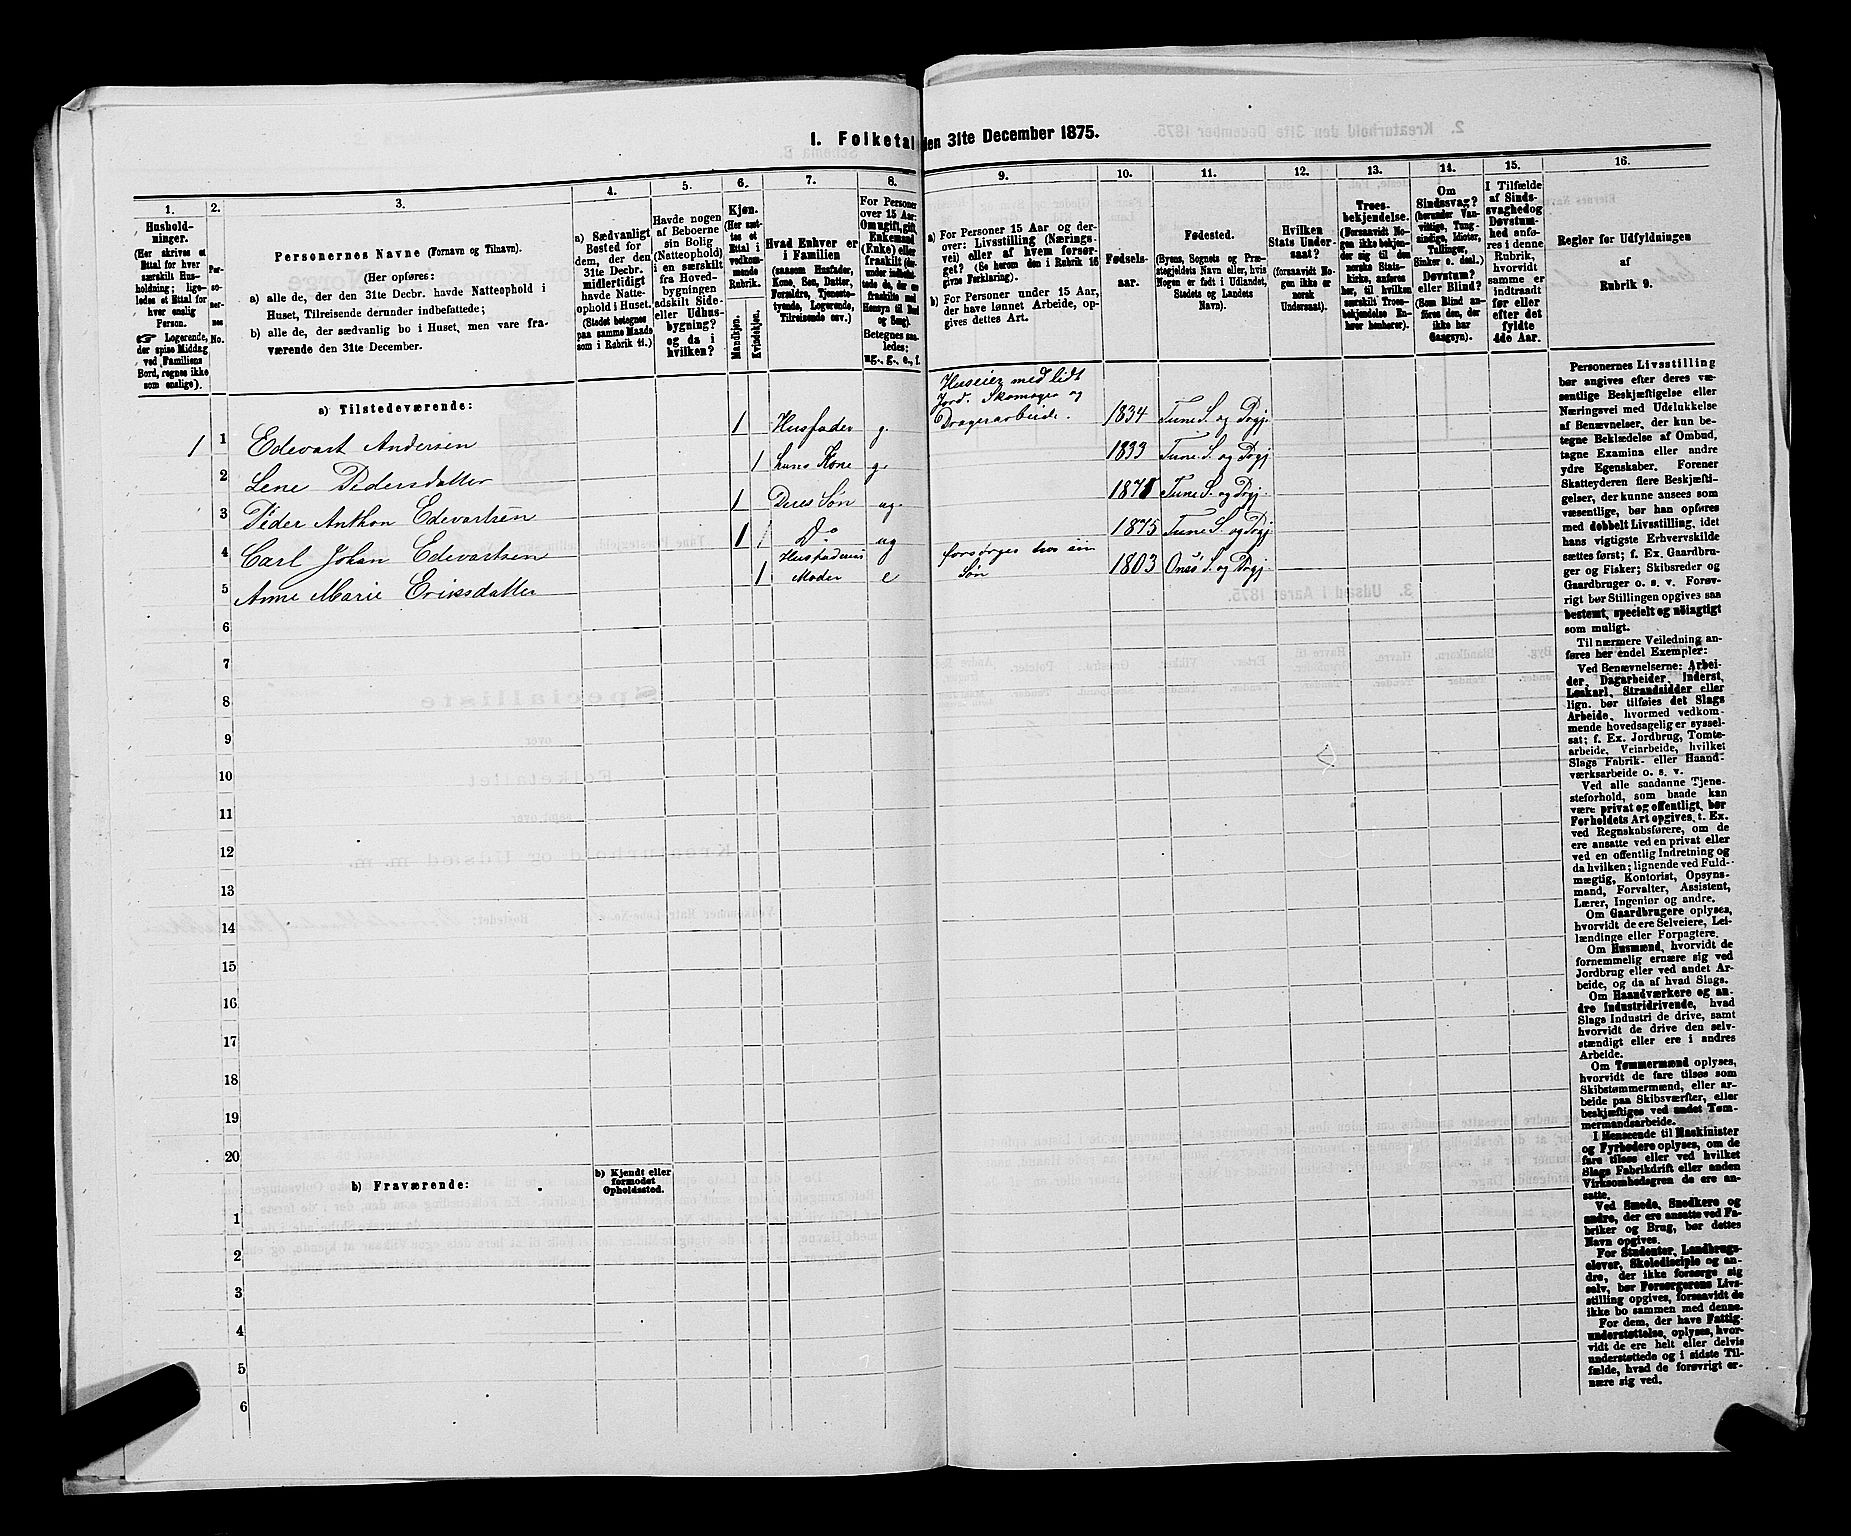 1. Folketal den 31te December 1875.
1. 2. 3. 4. 5. 6. 7. 8. 9. 10. 11. 12. 13. 14. 15. 16.
Hushold-
ninger.
(Her skrives et
Ettal for hver
særskilt Hus-
holdning; lige-
ledes et Ettal for
hver enslig
Person.
☞ Logerende,
der spise Middag
ved Familiens
Bord, regnes ikke
som enslige).
Per-
so-
ner-
nes
No.
Personernes Navne (Fornavn og Tilnavn).
(Her opføres:
a) alle de, der den 31te Decbr. havde Natteophold i
Huset, Tilreisende derunder indbefattede;
b) alle de, der sædvanlig bo i Huset, men vare fra-
værende den 31te December.
a) Sædvanligt
Bosted for
dem, der den
31te Decbr.
midlertidigt
havde Natte-
ophold i Huset.
(Stedet betegnes
paa samme Maade
som i Rubrik 11.)
Havde nogen
af Beboerne
sin Bolig
(Natteophold)
i en særskilt
fra Hoved-
bygningen
adskilt Side-
eller Udhus-
bygning?
og da i
hvilken?
Kjøn.
(Her sæt-
tes et
Ettal i
vedkom-
mende
Rubrik.
Mandkjøn.
Kvindekjøn.
Hvad Enhver er
i Familien
(saasom Husfader,
Kone, Søn, Datter,
Forældre, Tjeneste-
tyende, Logerende,
Tilreisende osv.)
For Personer
over 15 Aar:
Om ugift, gift,
Enkemand
(Enke) eller
fraskilt
Betegnes saa-
ledes:
ug., g., e., f.
a) For Personer 15 Aar og der-
over: Livsstilling (Nærings-
vei) eller af hvem forsør-
get? (Se herom den i Rubrik 16
givne Forklaring).
b) For Personer under 15 Aar,
der have lønnet Arbeide, op-
gives dettes Art.
Fødsels-
aar.
Fødested.
(Byens, Sognets og Præ-
stegjeldets Navn eller, hvis
Nogen er født i Udlandet,
Stedets og Landets
Navn).
Hvilken
Stats Under-
saat?
(forsaavidt No-
gen ikke er
norsk
Undersaat).
Troes-
bekjendelse.
(Forsaavidt No-
gen ikke bekjen-
der sig til den
norske Stats-
kirke, anføres
her, til hvilken
særskilt Troes-
bekjendelse En-
hver henhører).
Om
Sindssvag?
(herunder Van-
vittige, Tung-
sindige, Idioter,
Tullinger,
Sinker o. desl.)
Døvstum?
eller Blind?
(Som Blind an-
føres den, der
ikke har
Gangsyn).
I Tilfælde
af Sinds-
svaghed og
Døvstum-
hed anfø-
res i denne
Rubrik,
hvorvidt
samme er
indtraadt
før eller
efter det
fyldte
4de Aar.
Regler for Udfyldningen
af
Rubrik 9.
a) Tilstedeværende:
1 1 Edevart Andersen 1 Husfader g. Huseier med lidt
Jord. Skomager og
Dragerarbeide. 1834 Tune S. og Prgj.
2 Lene Pedersdatter 1 hans Kone g. 1833 Tune S. og Prgj
3 Peder Anthon Edevartsen 1 Deres Søn ug. 1871 Tune S. og Prgj.
4 Carl Johan Edevartsen 1 Do ug 1875 Tune S. og Prgj
5 Anne Marie Eriksdatter 1 Husfaderens
Moder e forsørges hos sin
Søn 1803 Onsø S. og Prgj.
6
7
8
9
10
11
12
13
14
15
16
17
18
19
20
b) Fraværende:
b) Kjendt eller
formodet
Opholdssted.
1
2
3
4
5
6
Personernes Livsstilling
bør angives efter deres væ-
sentlige Beskjæftigelse eller
Næringsvei med Udelukkelse
af Benævnelser, der kun be-
tegne Beklædelse af Ombud,
tagne Examina eller andre
ydre Egenskaber. Forener
Skatteyderen flere Beskjæfti-
gelser, der kunne ansees som
væsentlige, bør han opføres
med dobbelt Livsstilling, idet
hans vigtigste Erhvervskilde
sættes først; f. Ex. Gaardbru-
ger og Fisker; Skibsreder og
Gaardbruger o. s. v. Forøv-
rigt bør Stillingen opgives saa
bestemt, specielt og nøiagtigt
som muligt.
Til nærmere Veiledning an-
føres her endel Exempler:
Ved Benævnelserne: Arbei-
der, Dagarbeider, Inderst,
Løskarl, Strandsidder eller
lign. bør tilføies det Slags
Arbeide, hvormed vedkom-
mende hovedsagelig er syssel-
sat; f. Ex. Jordbrug, Tomte-
arbeide, Veiarbeide, hvilket
Slags Fabrik- eller Haand-
værksarbeide o. s. v.
Ved alle saadanne Tjene-
steforhold, som baade kan
være privat og offentligt, bør
Forholdets Art opgives, t. Ex.
ved Regnskabsførere, om de
ere ansatte ved en privat eller
ved en offentlig Indretning og
da hvilken; lignende ved Fuld-
mægtig, Kontorist, Opsyns-
mand, Forvalter, Assistent,
Lærer, Ingeniør og andre.
Om Gaardbrugere oplyses,
hvorvidt de ere Selveiere, Lei-
lændinge eller Forpagtere.
Om Husmænd, hvorvidt de
fornemmelig ernære sig ved
Jordbrug eller ved andet Ar-
beide, og da af hvad Slags.
Om Haandværkere og an-
dre industridrivende, hvad
Slags Industri de drive, samt
hvorvidt de drive den selv-
stændigt eller ere i andres
Arbeide.
Om Tømmermænd oplyses,
hvorvidt de fare tilsøs som
Skibstømmermænd, eller ar-
beide paa Skibsværfter, eller
beskjæftiges ved andet Tøm-
mermandsarbeide.
I Henseende til Maskinister
og Fyrbødere oplyses, om de
fare tilsøs eller ved hvilket
Slags Fabrikdrift eller anden
Virksomhedsgren de ere an-
satte.
Ved Smede, Snedkere og
andre, der ere ansatte ved Fa-
briker og Brug, bør dettes
Navn opgives.
For Studenter, Landbrugs-
elever, Skoledisciple og an-
dre, der ikke forsørge sig
selv, bør Forsørgerens Livs-
stilling opgives, forsaavidt de
ikke bo sammen med denne.
For dem, der have Fattig-
understøttelse, oplyses, hvor-
vidt de ere helt eller delvis
understøttede og i sidste Til-
fælde, hvad de forøvrigt er-
nære sig ved.